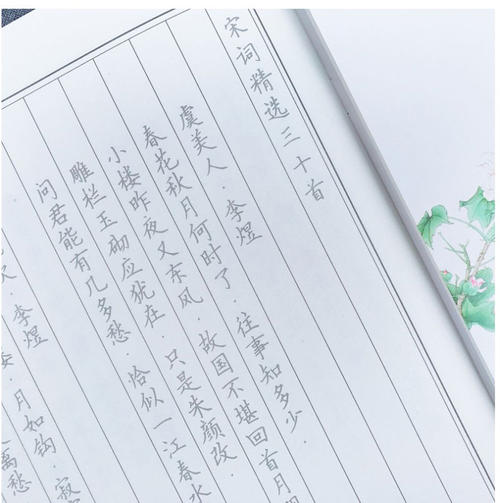 宋词精选三十首
虞美人·李煜
春花秋月何时了·往事知多少·
小楼昨夜又东风·故国不堪回首月
雕栏玉砌应犹在·只是朱颜改·
问君能有几多愁·恰似一江春水
·李煜
·月如钩·寂
离愁